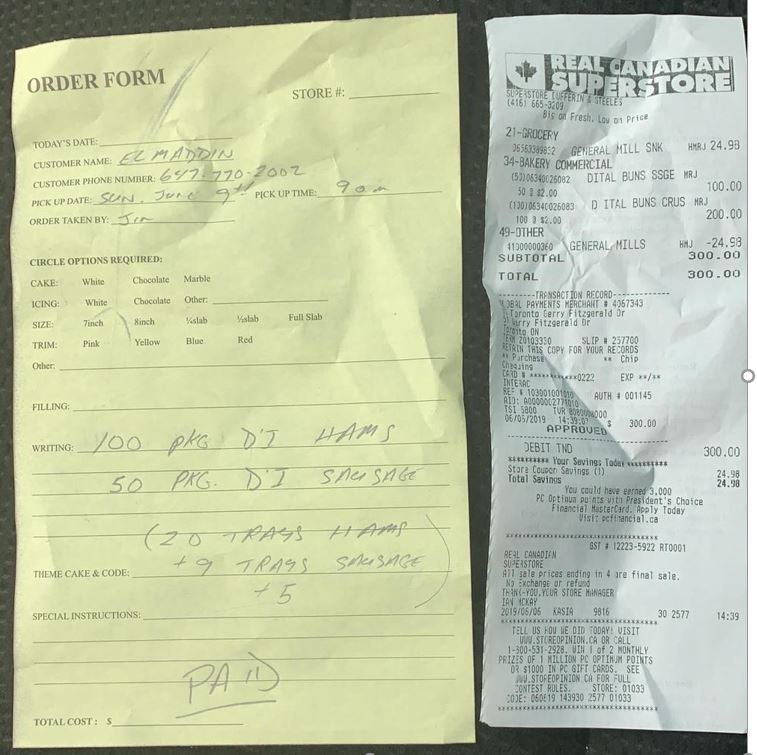 ORDER FORM
STORE #:
TODAY'S DATE:
CUSTOMER NAME: EL MADDIN
CUSTOMER PHONE NUMBER: 647-770-2002
PICK UP DATE: SUN. June 9th PICK UP TIME: 9 am
ORDER TAKEN BY: Jim
CIRCLE OPTIONS REQUIRED:
CAKE: White Chocolate Marble
ICING: White Chocolate Other:
SIZE: 7inch 8inch ¼slab ½slab Full Slab
TRIM: Pink Yellow Blue Red
Other:
FILLING:
WRITING: 100 PKG D'I HAMS
50 PKG. D'I SAUSAGE
(20 TRAYS HAMS
+9 TRAYS SAUSAGE
THEME CAKE & CODE:
+5 )
SPECIAL INSTRUCTIONS:
PAID
TOTAL COST: $
REAL CANADIAN
SUPERSTORE
SUPERSTORE DUFFERIN & STEELES
(416) 665-3209
Big on Fresh, Low on Price
21-GROCERY
06563389832 GENERAL MILL SNK HMRJ 24.98
34-BAKERY COMMERCIAL
(50)06340026082 DITAL BUNS SSGE MRJ
50 @ $2.00 100.00
(100)06340026083 D ITAL BUNS CRUS MRJ
100 @ $2.00 200.00
49-OTHER
41000000360 GENERAL MILLS HMJ -24.98
SUBTOTAL 300.00
TOTAL 300.00
----------TRANSACTION RECORD----------
GLOBAL PAYMENTS MERCHANT # 4067343
Toronto Gerry Fitzgerald Dr
Gerry Fitzgerald Dr
Toronto ON
TERM 20103330 SLIP # 257700
RETAIN THIS COPY FOR YOUR RECORDS
** Purchase ** Chip
Chequing
CARD # ************0222 EXP **/**
INTERAC
REF # 103001001010 AUTH # 001145
AID: A0000002771010
TSI 6800 TVR 8080008000
06/06/2019 14:39:07 $ 300.00
APPROVED
DEBIT TND 300.00
********** Your Savings Today **********
Store Coupon Savings (1) 24.98
Total Savings 24.98
You could have earned 3,000
PC Optimum points with President's Choice
Financial MasterCard. Apply Today
Visit pcfinancial.ca
****************************************
GST # 12223-5922 RT0001
REAL CANADIAN
SUPERSTORE
All sale prices ending in 4 are final sale.
No Exchange or refund
THANK-YOU,YOUR STORE MANAGER
IAN MCKAY
2019/06/06 KASIA 9816 30 2577 14:39
****************************************
TELL US HOW WE DID TODAY! VISIT
WWW.STOREOPINION.CA OR CALL
1-800-531-2928. WIN 1 of 2 MONTHLY
PRIZES OF 1 MILLION PC OPTIMUM POINTS
OR $1000 IN PC GIFT CARDS. SEE
WWW.STOREOPINION.CA FOR FULL
CONTEST RULES. STORE: 01033
CODE: 060619 143930 2577 01033
****************************************